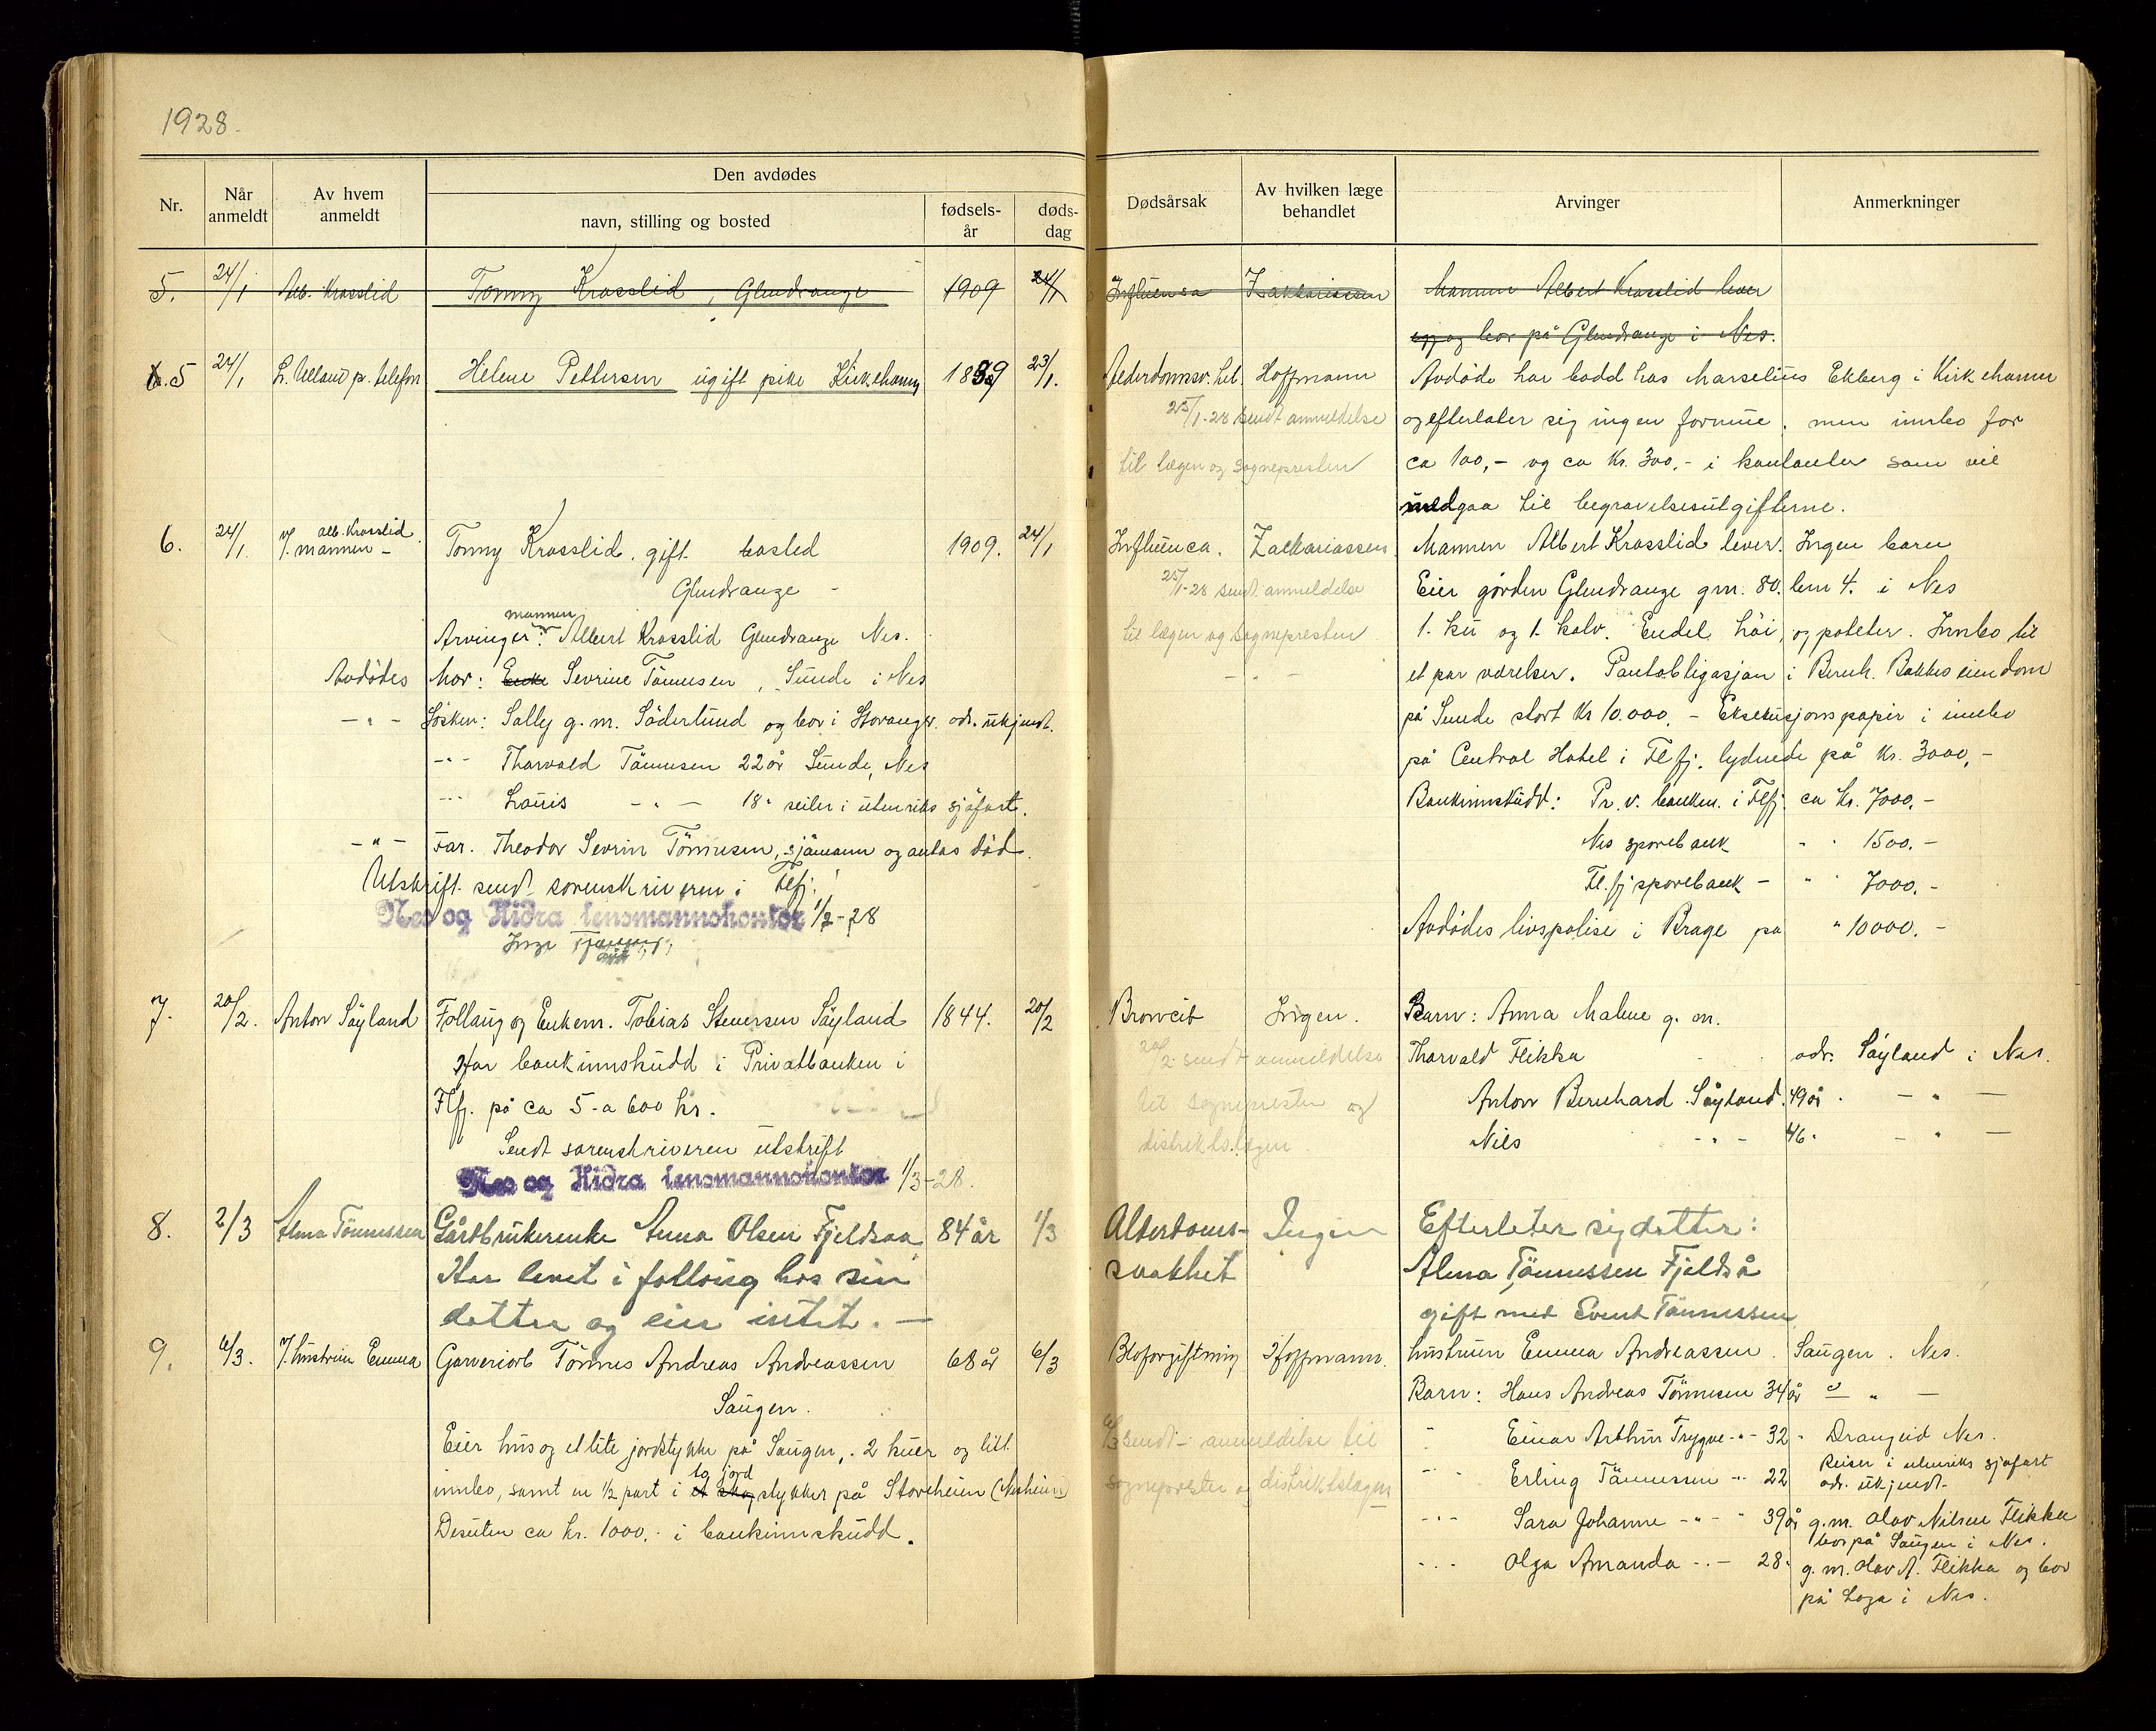 1928.
Nr.
Når anmeldt
Av hvem anmeldt
Den avdødes
navn, stilling og bosted
fødsels-år
døds-dag
Dødsårsak
Av hvilken læge behandlet
Arvinger
Anmerkninger
5. 24/1 Alb. Krosslid Tonny Krosslid, Glendrange 1909 24/1 Influensa Zakkariassen Mannen Albert Krosslid lever
og bor på Glendrange i Nes.
5 24/1 L. Ulland p. telefon Helene Pettersen ugift pike Kirkehamn 1889 23/1. Alderdomsv. hel. Hoffmann Avdøde har bodd hos Marselius Ekberg i Kirkehamn
25/1-28 sendt anmeldelse og efterlater sig ingen formue, men innbo for
til lægen og sognepresten ca 100,- og ca Kr. 300,- i kontanter som vil
medgaa til begravelsesutgifterne.
6. 24/1. v/ mannen alb. Krosslid - Tonny Krosslid. gift. bosted 1909. 24/1 Influenca. Zackariassen Mannen Albert Krosslid lever. Ingen barn
Glendrange - 25/1-28 sendt anmeldelse Eier gården Glendrange gm. 80. bm 4. i Nes
Arvinger: mannen Albert Krosslid Glendrange Nes. til lægen og sognepresten 1. ku og 1. kalv. Endel høi, og poteter. Innbo til
Avdødes Mor: Enke Sevrine Tønnesen, Sunde i Nes - " - et par værelser. Pantobligasjon i Bernh. Bakkes eiendom
- " - Søsken: Sally g. m. Söderlund og bor i Stavanger. adr. ukjendt. på Sunde stort Kr 10.000,- Eksekusjonspapir i innbo
- " - Thorvald Tønnesen 22 år Sunde, Nes på Central Hotel i Flfj. lydnede på kr. 3000,-
- " - Louis - " - 18 " seiler i utenriks sjøfart. Bankinnskudd: Pr. v. banken. i Flfj. ca kr. 7000.-
- " - Far. Theodor Sevrin Tønnesen, sjømann og antas død. Nes sparebank " " 1500.-
Utskrift sendt sorenskriveren i Flfj. Fl.fj sparebank - " 7000.-
Nes og Hidra lensmannskontor 1/2-28 Avdødes livspolise i Brage på " 10000.-
Inge
7. 20/2. Anton Søyland Follaug og Enkem. Tobias Stenersen Søyland 1844. 20/2 Broncit Ingen. Barn: Anna Malene g. m.
Har bankinnskudd i Privatbanken i 20/2 sendt anmeldelse Thorvald Flikka adr. Søyland i Nes.
Flfj. på ca 5-a 600 kr. til sogneprest og Anton Bernhard Søyland. 49 år - " -
Sendt sorenskriveren utskrift distriktslægen Nils - " - 46 " - " -
Nes og Hidra lensmannskontor 1/3-28.
8. 2/3 Alma Tønnessen Gårdbrukerenke Anna Olsen Fjeldsaa 84 år 1/3 Alderdoms- Ingen Efterleter sig datter:
Har levet i follaug hos sin svakhet Alma Tønnessen Fjeldså
datter og eier intet. - gift med Evert Tønnessen
9. 6/3. v/ hustruen Emma Garveriarb Tønnes Andreas Andreassen 68 år 6/3 Blofor­giftning Hoffmann. hustruen Emma Andreassen. Saugen. Nes.
Saugen. Barn: Hans Andreas Tønnesen 34 år - " -
Eier hus og et lite jordstykke på Saugen, 2 kuer og litt 6/3 sendt anmeldelse til " Einar Arthur Trygve - " - 32 " Drangeid Nes.
innbo, samt en 1/2 part i et skog to jord stykker på Storeheien (Nesheien) sogneprester og distriktslægen - " Erling Tønnessen - " - 22 Reiser i utenriks sjøfart adr. ukjendt.
Desuten ca kr. 1000,- i bankinnskudd. - " - Sara Johanne - " - 39 år g. m. Olav Nilsen Flikka bor på Saugen i Nes.
- " - Olga Amanda - " - 28 " g. m. Olav A. Flikka og bor
på Loga i Nes.